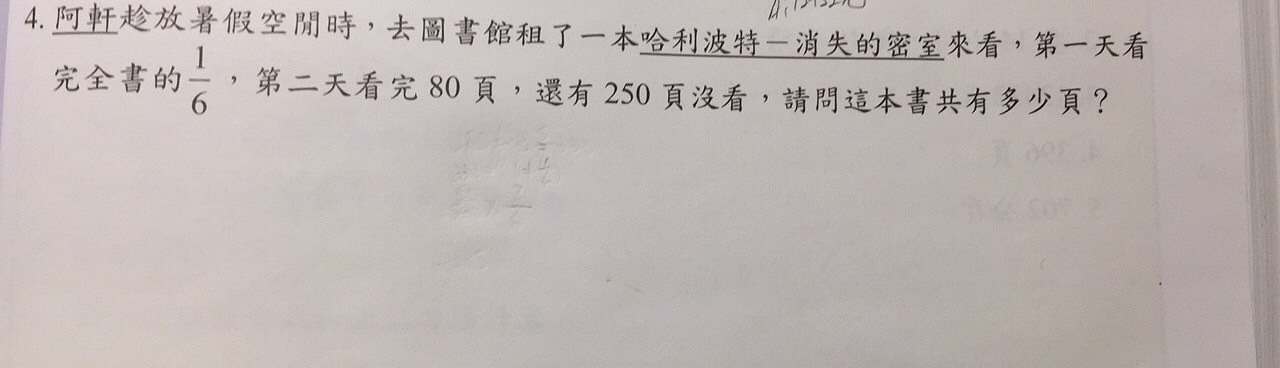 4. 阿軒趁放暑假空閒時，去圖書館租了一本哈利波特－消失的密室來看，第一天看
完全書的 1/6 ，第二天看完 80 頁，還有 250 頁沒看，請問這本書共有多少頁？